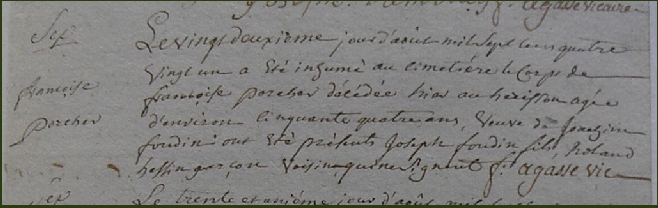 agasse vicaire
Sep
Le vingt deuxième jour d'août mil sept cens quatre
vingt un a été inhumé au cimetière le corps de
françoise porcher décédée hier au herisson agée
françoise
porcher
d'environ cinquante quatre ans, veuve de Joachim
foudin ont été présents Joseph foudin fils, Roland
hessin garçon voisin qui ne signent f. agasse vic
Sep
Le trente et unième jour d'août mil sept